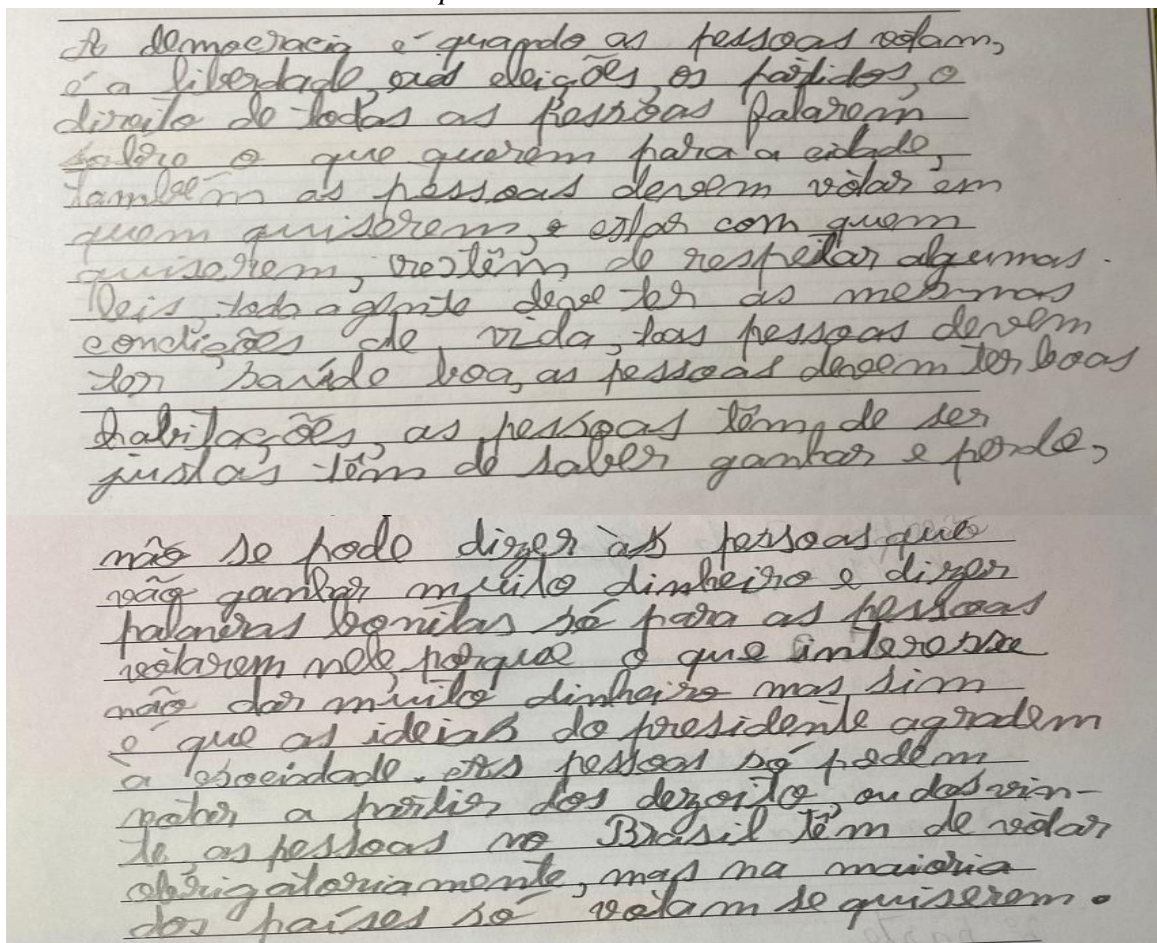 A democracia é quando as pessoas votam,
é a liberdade, as eleições, os partidos, o
direito de todas as pessoas falarem
sobre o que querem para a cidade,
também as pessoas devem votar em
quem quiserem, e estar com quem
quiserem, têm de respeitar algumas
leis, toda a gente deve ter as mesmas
condições de vida, as pessoas devem
ter saúde boa, as pessoas devem ter boas
habitações, as pessoas têm de ser
justas têm de saber ganhar e perde,
não se pode dizer às pessoas que
vão ganhar muito dinheiro e dizer
palavras bonitas só para as pessoas
votarem nele, porque o que interesse
não dar muito dinheiro mas sim
é que as ideias do presidente agradem
a sociedade. As pessoas só podem
votar a partir dos dezoito, ou dos vin-
te, as pessoas no Brasil têm de votar
obrigatoriamente, mas na maioria
dos países só votam se quiserem.